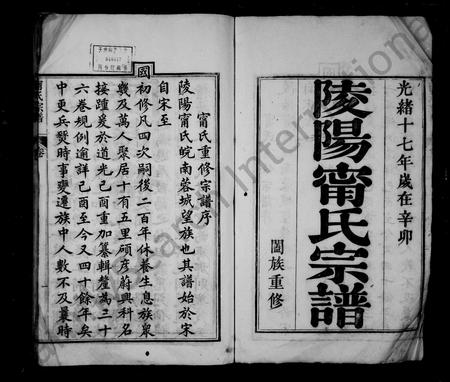 光緒十七年歲在辛卯
陵陽甯氏宗譜
闔族重修
甯氏重修宗譜序
陵陽甯氏皖南蓉城望族也其譜始於宋
自宋至
國
初修凡四次嗣後二百年休養生息族衆
幾及萬人聚居十有五里碩彥蔚興科名
接踵爰於道光己酉重加纂輯釐為三十
六卷規例逾詳己酉至今又四十餘年矣
中更兵燹時事變遷族中人數不及曩時